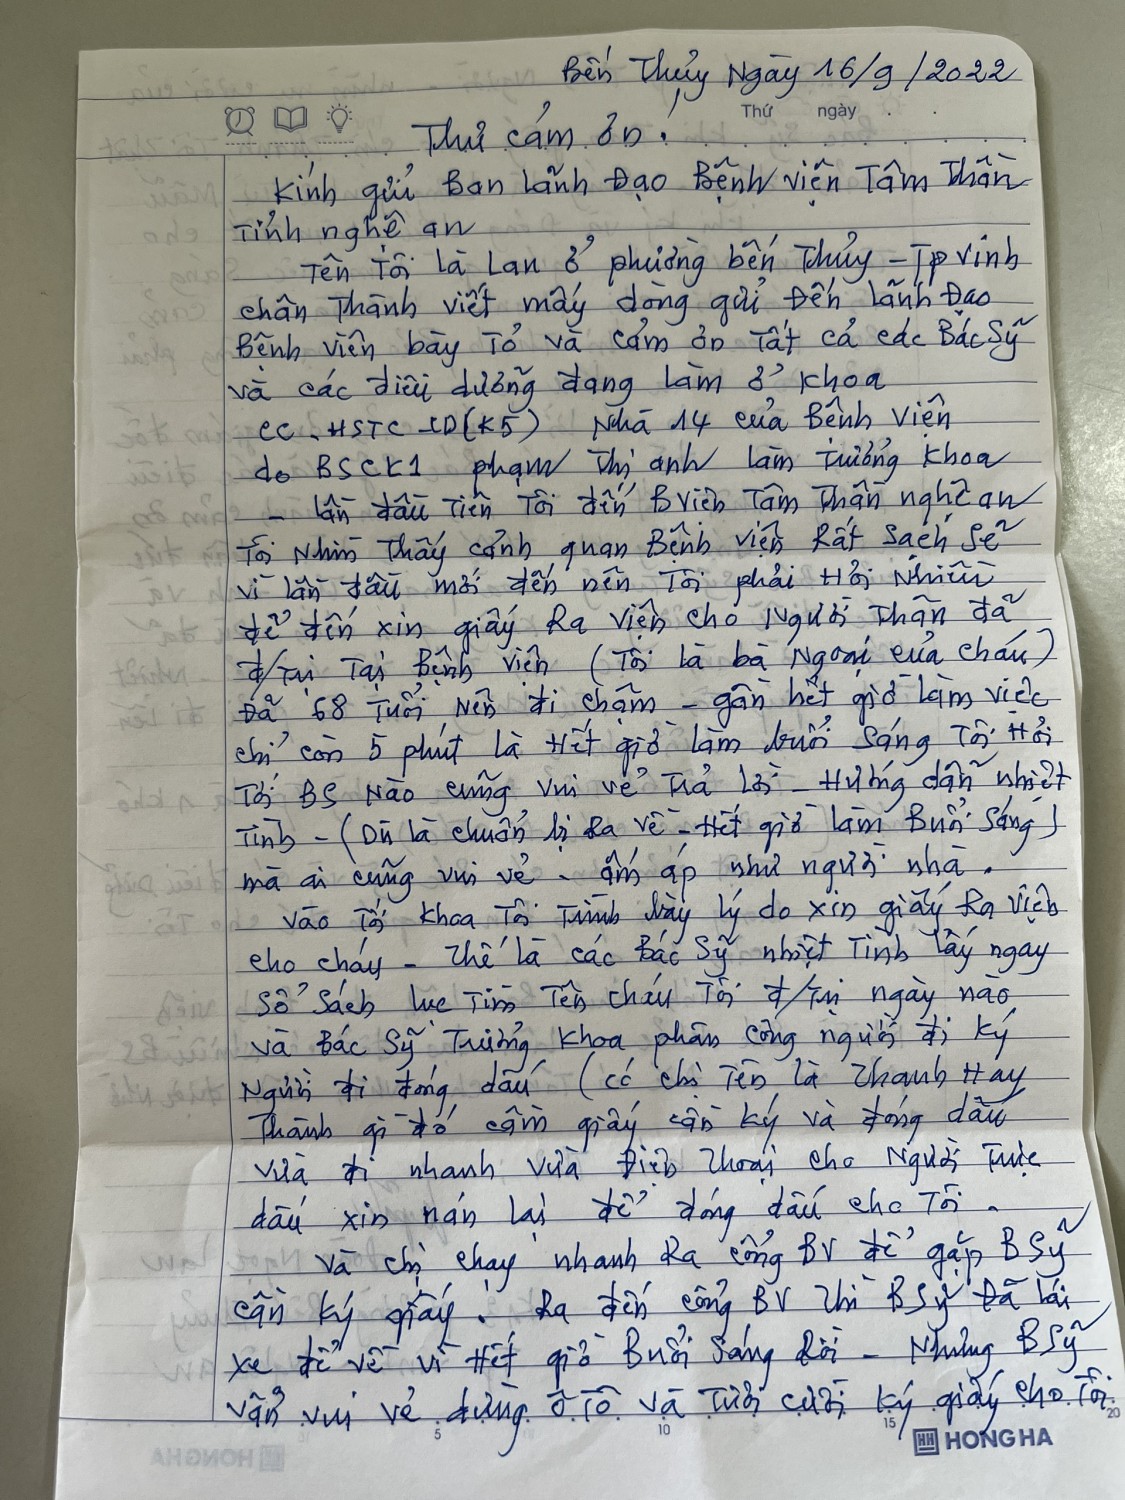 Bến Thủy Ngày 16/9/2022
Thứ ngày
Thư cảm ơn!
Kính gửi Ban lãnh Đạo Bệnh viện Tâm Thần
Tỉnh nghệ an
Tên Tôi là Lan ở phường bến Thủy - Tp Vinh
chân Thành viết mấy dòng gửi Đến lãnh Đạo
Bệnh viện bày Tỏ và cảm ơn Tất cả các Bác Sỹ
và các điều dưỡng đang làm ở khoa
CC-HSTC-CD(K5) Nhà 14 của Bệnh Viện
do BSCK1 phạm Thị anh làm Trưởng khoa
- lần đầu Tiên Tôi đến BViện Tâm Thần nghệ an
Tôi Nhìn Thấy cảnh quan Bệnh viện Rất Sạch Sẽ
vì lần đầu mới đến nên Tôi phải Hỏi Nhiều
để đến xin giấy Ra Viện cho Người Thân đã
đ/trị Tại Bệnh viện (Tôi là bà Ngoại của cháu)
Đã 68 Tuổi Nên đi chậm - gần hết giờ làm việc
chỉ còn 5 phút là Hết giờ làm buổi sáng Tôi Hỏi
Tới BS Nào cũng vui vẻ Trả lời - Hướng dẫn nhiệt
Tình - (Dù là chuẩn bị Ra về - Hết giờ làm Buổi Sáng)
mà ai cũng vui vẻ - ấm áp như người nhà.
vào Tới khoa Tôi Trình bày lý do xin giấy Ra Viện
cho cháu - Thế là các Bác Sỹ nhiệt Tình lấy ngay
Sổ Sách lục Tìm Tên cháu Tôi đ/trị ngày nào
và Bác Sỹ Trưởng khoa phân công người đi ký
Người đi đóng dấu (có chị Tên là Thanh Hay
Thành gì đó cầm giấy cần ký và đóng dấu
vừa đi nhanh vừa Điện Thoại cho Người Trực
dấu xin nán lại để đóng dấu cho Tôi.
và chị chạy nhanh Ra cổng BV để gặp BSỹ
cần ký giấy. Ra đến cổng BV Thì BSỹ Đã lái
xe để về vì Hết giờ Buổi Sáng Rồi - Nhưng BSỹ
vẫn vui vẻ dừng ô Tô và Tươi cười ký giấy cho Tôi.
5 10 15 20
HONG HA